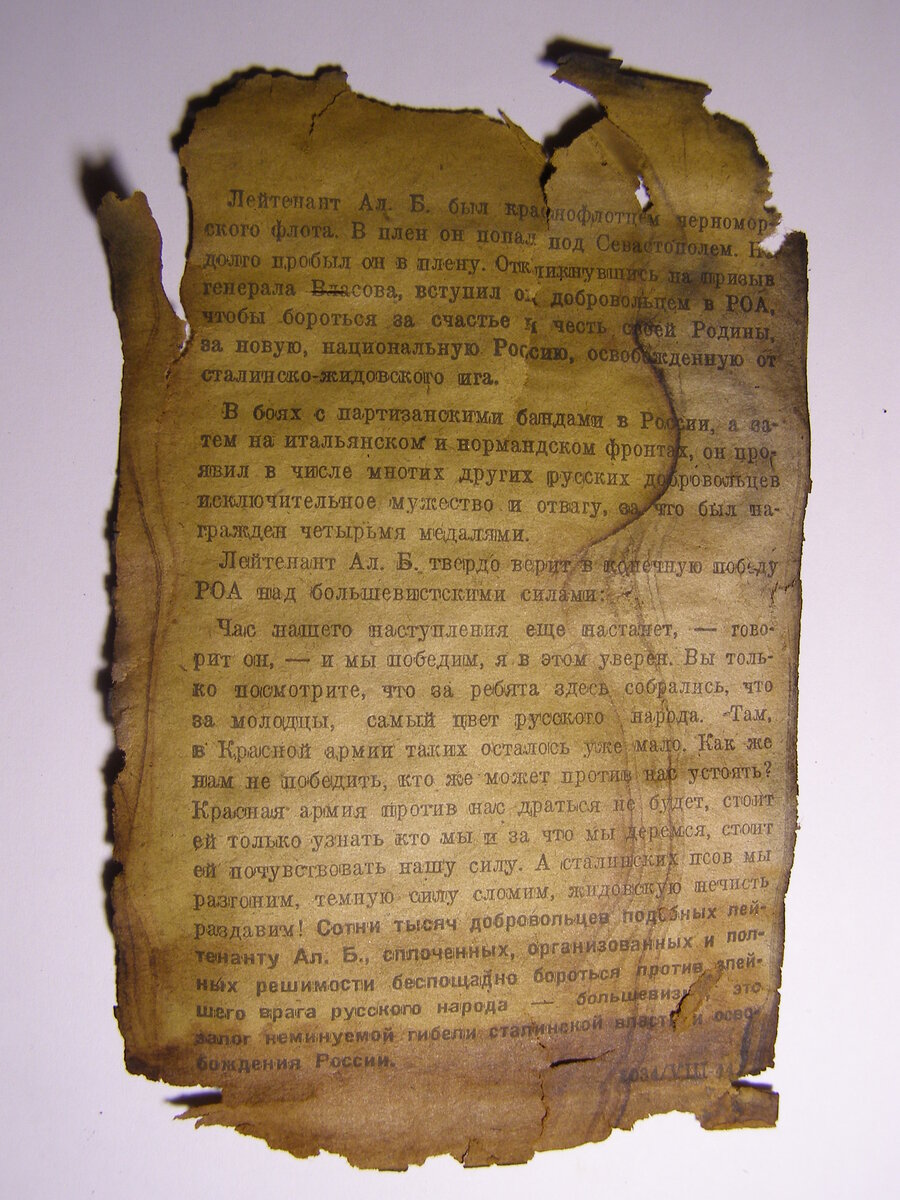 Лейтенант Ал. Б. был краснофлотцем черномор-
ского флота. В плен он попал под Севастополем. Не
долго пробыл он в плену. Откликнувшись на призыв
генерала Власова, вступил он добровольцем в РОА,
чтобы бороться за счастье и честь своей Родины,
за новую, национальную Россию, освобожденную от
сталинско-жидовского ига.
В боях с партизанскими бандами в России, а за-
тем на итальянском и нормандском фронтах, он про-
явил в числе многих других русских добровольцев
исключительное мужество и отвагу, за что был на-
гражден четырьмя медалями.
Лейтенант Ал. Б. твердо верит в конечную победу
РОА над большевистскими силами:
Час нашего наступления еще настанет, — гово-
рит он, — и мы победим, я в этом уверен. Вы толь-
ко посмотрите, что за ребята здесь собрались, что
за молодцы, самый цвет русского народа. Там,
в Красной армии таких осталось уже мало. Как же
нам не победить, кто же может против нас устоять?
Красная армия против нас драться не будет, стоит
ей только узнать кто мы и за что мы деремся, стоит
ей почувствовать нашу силу. А сталинских псов мы
разгоним, темную силу сломим, жидовскую нечисть
раздавим! Сотни тысяч добровольцев подобных лей-
тенанту Ал. Б., сплоченных, организованных и пол-
ных решимости беспощадно бороться против злей-
шего врага русского народа — большевизма, это
залог неминуемой гибели сталинской власти и осво-
бождения России.
VIII 44